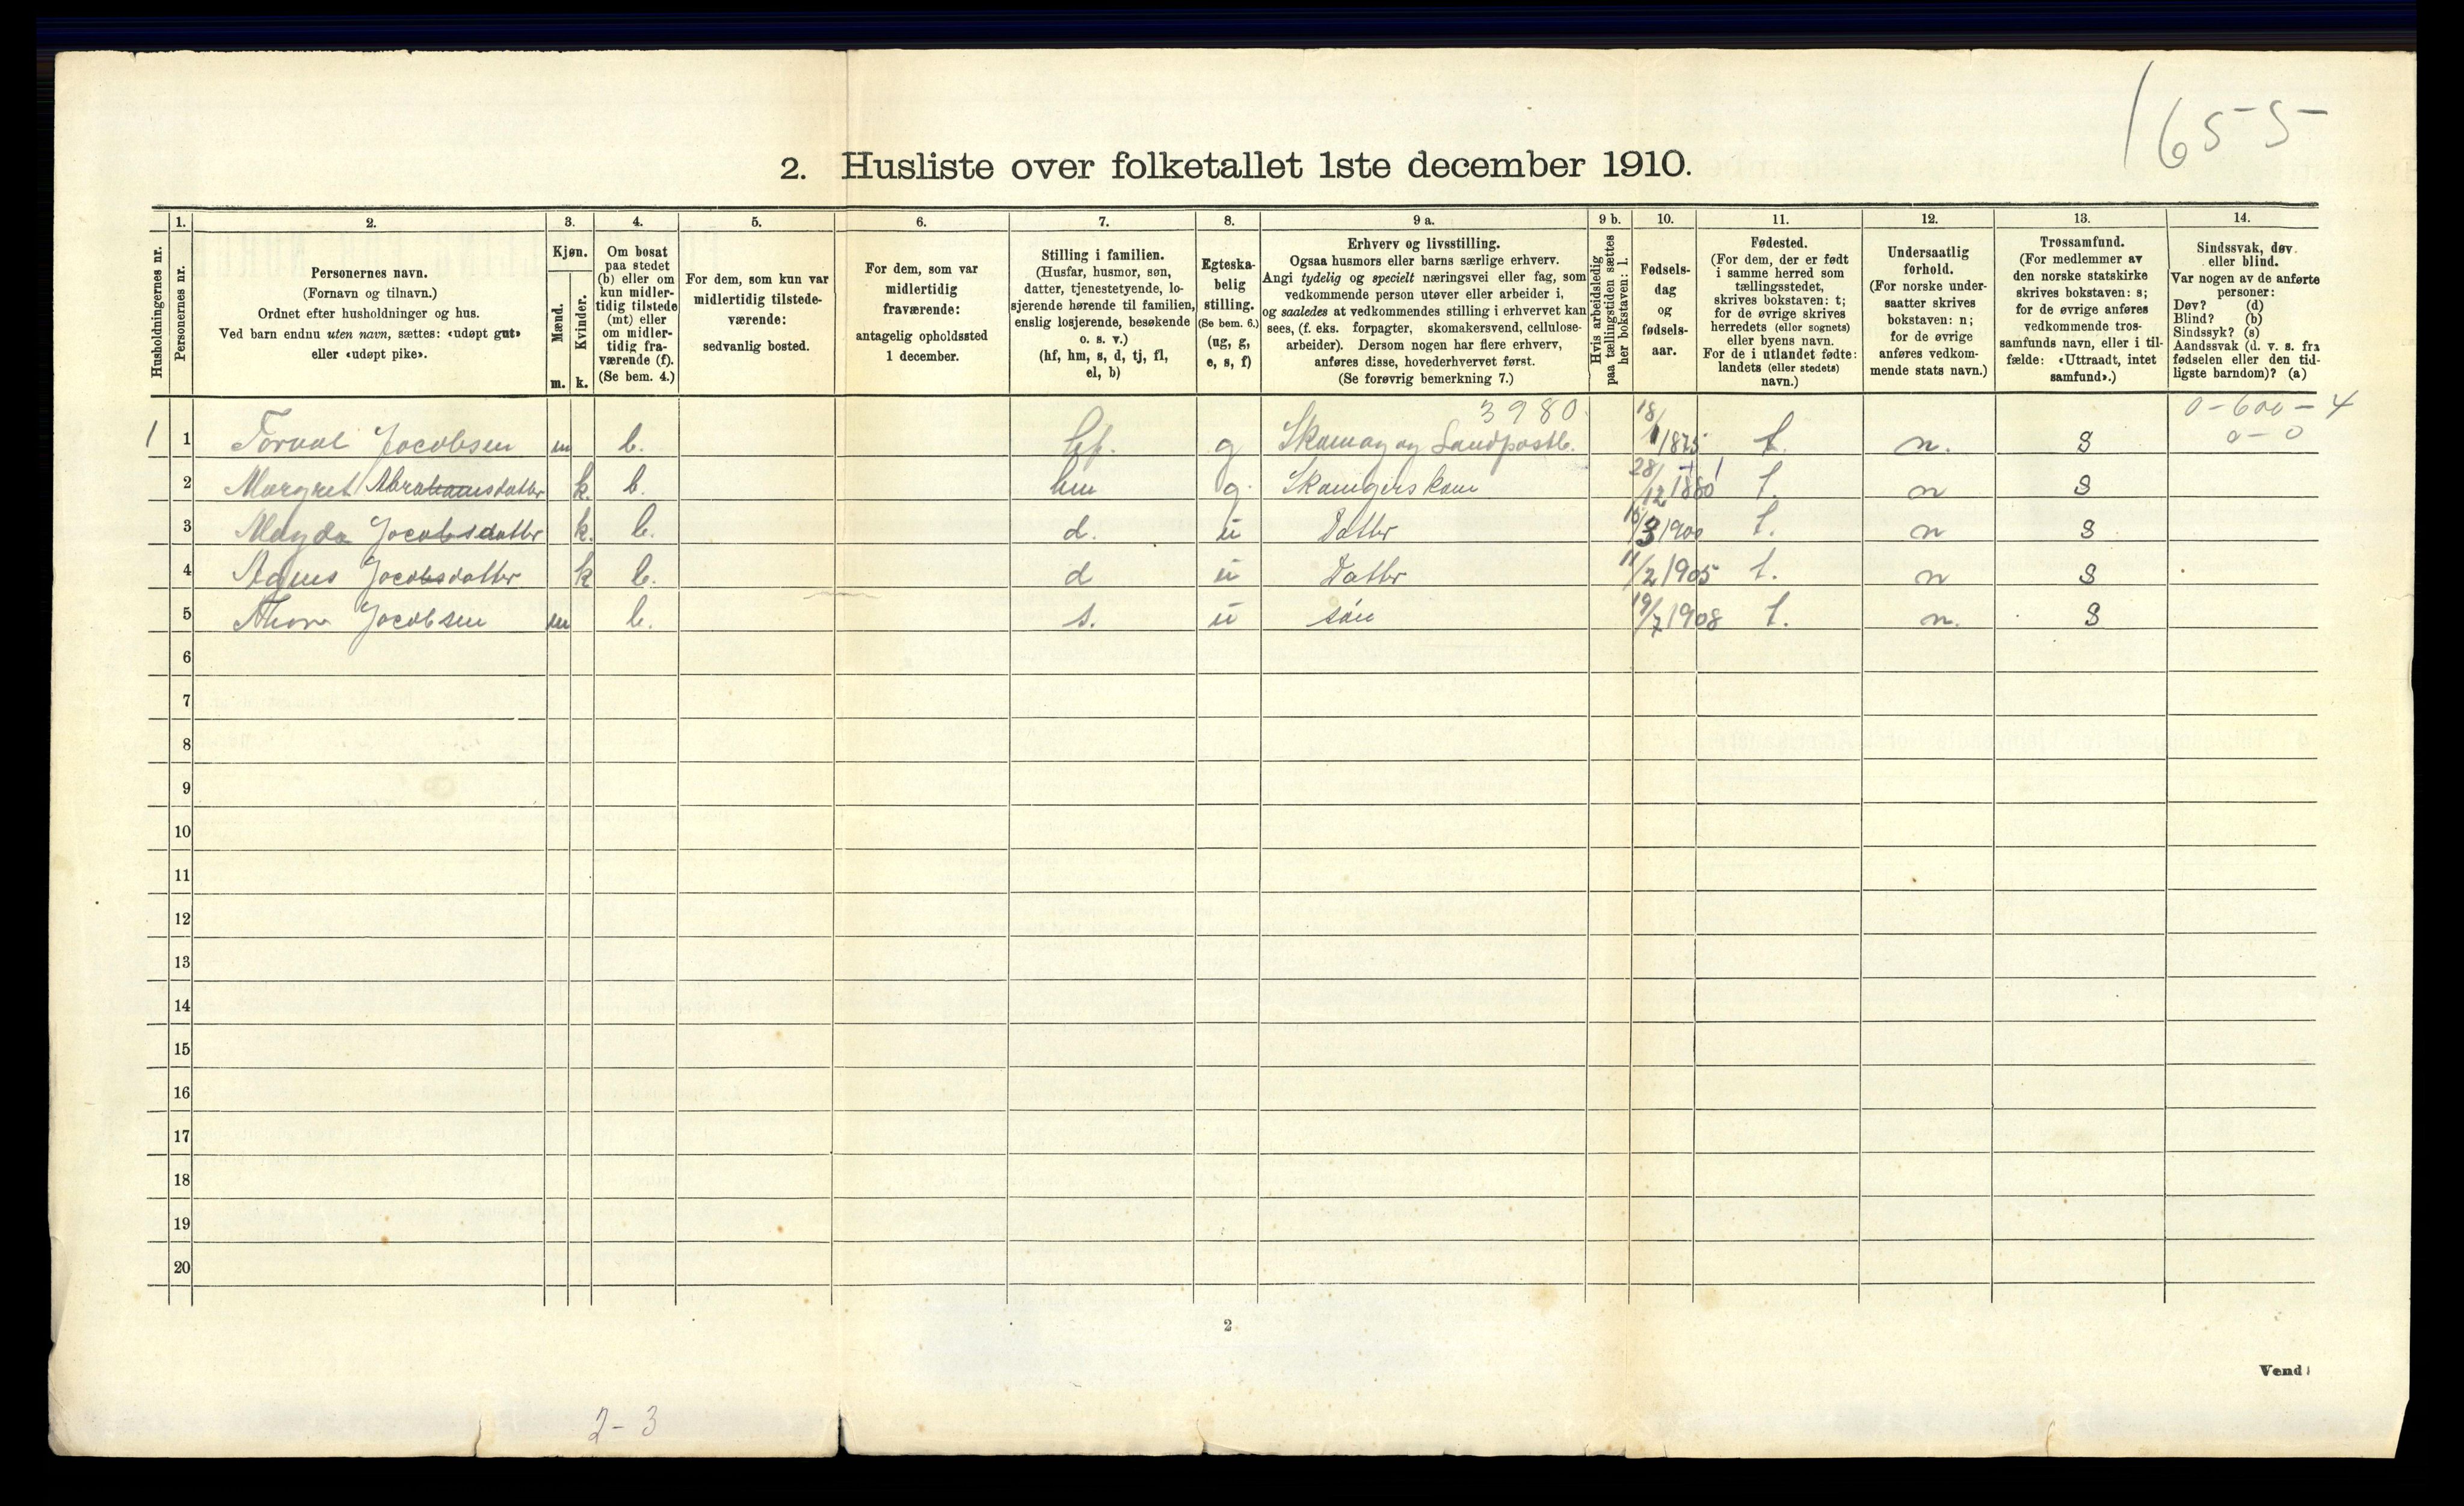 1655
2. Husliste over folketallet 1ste december 1910.
Husholdningernes nr.
1.
Personernes nr.
2.
Personernes navn.
(Fornavn og tilnavn.)
Ordnet efter husholdninger og hus.
Ved barn endnu uten navn, sættes: «udøpt gut»
eller «udøpt pike».
3.
Kjøn.
Mænd.
m.
Kvinder.
k.
4.
Om bosat
paa stedet
(b) eller om
kun midler-
tidig tilstede
(mt) eller
om midler-
tidig fra-
værende (f).
(Se bem. 4.)
5.
For dem, som kun var
midlertidig tilstede-
værende:
sedvanlig bosted.
6.
For dem, som var
midlertidig
fraværende:
antagelig opholdssted
1 december.
7.
Stilling i familien.
(Husfar, husmor, søn,
datter, tjenestetyende, lo-
sjerende hørende til familien,
enslig losjerende, besøkende
o. s. v.)
(hf, hm, s, d, tj, fl,
el, b)
8.
Egteska-
belig
stilling.
(Se bem. 6.)
(ug, g,
e, s, f)
9 a.
Erhverv og livsstilling.
Ogsaa husmors eller barns særlige erhverv.
Angi tydelig og specielt næringsvei eller fag, som
vedkommende person utøver eller arbeider i,
og saaledes at vedkommendes stilling i erhvervet kan
sees, (f. eks. forpagter, skomakersvend, cellulose-
arbeider). Dersom nogen har flere erhverv,
anføres disse, hovederhvervet først.
(Se forøvrig bemerkning 7.)
9 b.
Hvis arbeidsledig
paa tællingstiden sættes
her bokstaven: l.
10.
Fødsels-
dag
og
fødsels-
aar.
11.
Fødested.
(For dem, der er født
i samme herred som
tællingsstedet,
skrives bokstaven: t;
for de øvrige skrives
herredets (eller sognets)
eller byens navn.
For de i utlandet fødte:
landets (eller stedets)
navn.)
12.
Undersaatlig
forhold.
(For norske under-
saatter skrives
bokstaven: n;
for de øvrige
anføres vedkom-
mende stats navn.)
13.
Trossamfund.
(For medlemmer av
den norske statskirke
skrives bokstaven: s;
for de øvrige anføres
vedkommende tros-
samfunds navn, eller i til-
fælde: «Uttraadt, intet
samfund».)
14.
Sindssvak, døv
eller blind.
Var nogen av de anførte
personer:
Døv? (d)
Blind? (b)
Sindssyk? (s)
Aandssvak (d. v. s. fra
fødselen eller den tid-
ligste barndom)? (a)
3980 0-600-4
1 1 Torval Jacobsen m b. hf. g Skomag og Landpostb. 18/1 1875 t. n. s 0-0
2 Margret Abrahamsdatter k. b. hm g. 28/12 1880 t. n s
3 Magda Jocobsdatter k. b. d. u Datter 1900 t. n s
4 Agnes Jocobsdatter k b. d u Datter 11/2 1905 t. n s
5 Thor Jocobsen m b. s. u søn 19/7 1908 t. n. s
6
7
8
9
10
11
12
13
14
15
16
17
18
19
20
2
Vend!
2-3